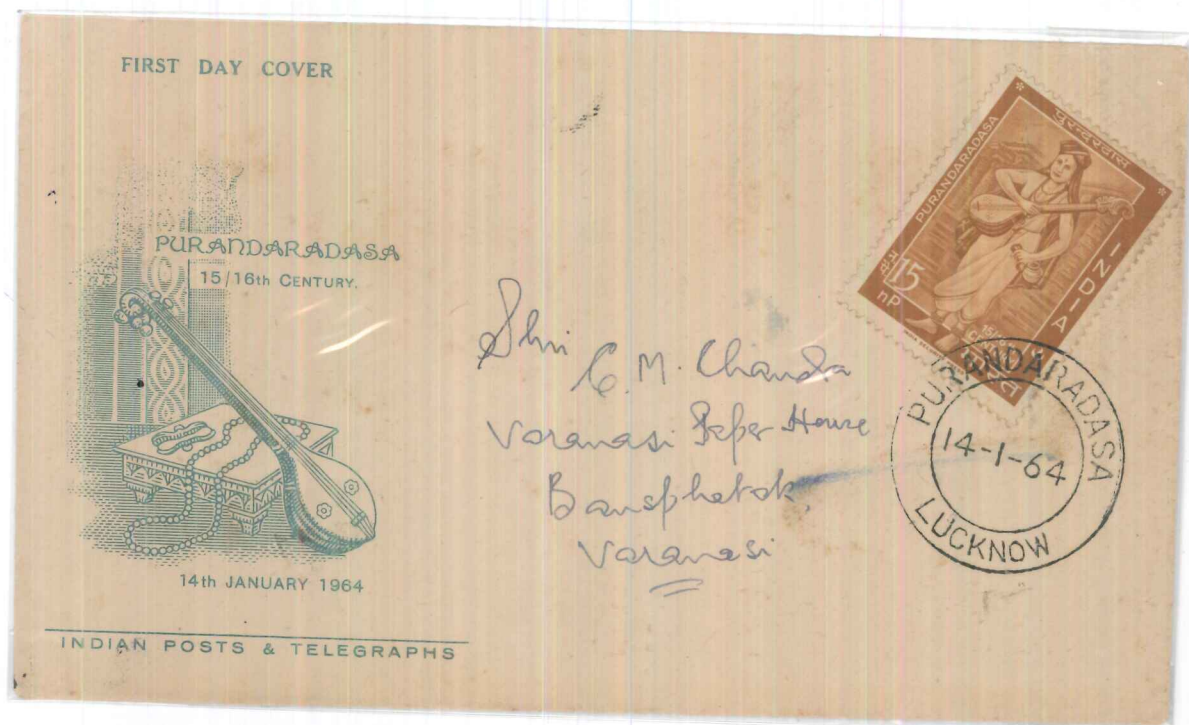 FIRST DAY COVER
PURANDARADASA
15/16th CENTURY.
14th JANUARY 1964
INDIAN POSTS & TELEGRAPHS
Shri
C. M. Chandra
Varanasi Paper House
Bansphatak,
Varanasi
PURANDARADASA
पुरन्दरदास
INDIA
15
nP
PURANDARADASA
14-1-64
LUCKNOW